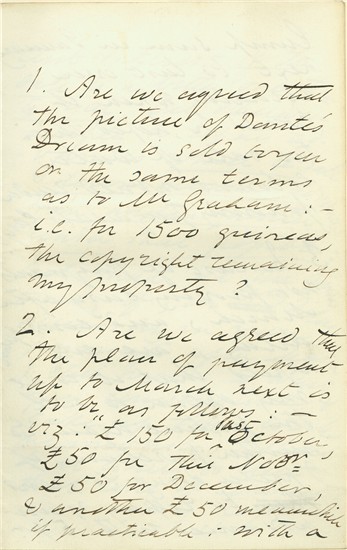 1. Are we agreed that
the picture of Dante's
Dream is sold to you
on the same terms
as to Mr Graham:—
i.e. for 1500 guineas,
the copyright remaining
my property?
2. Are we agreed that
the plan of payment
up to March next is
to be as follows:—
viz: £150 for last October,
£50 for this Novr
£50 for December,
& another £50 meanwhile
if practicable: with a